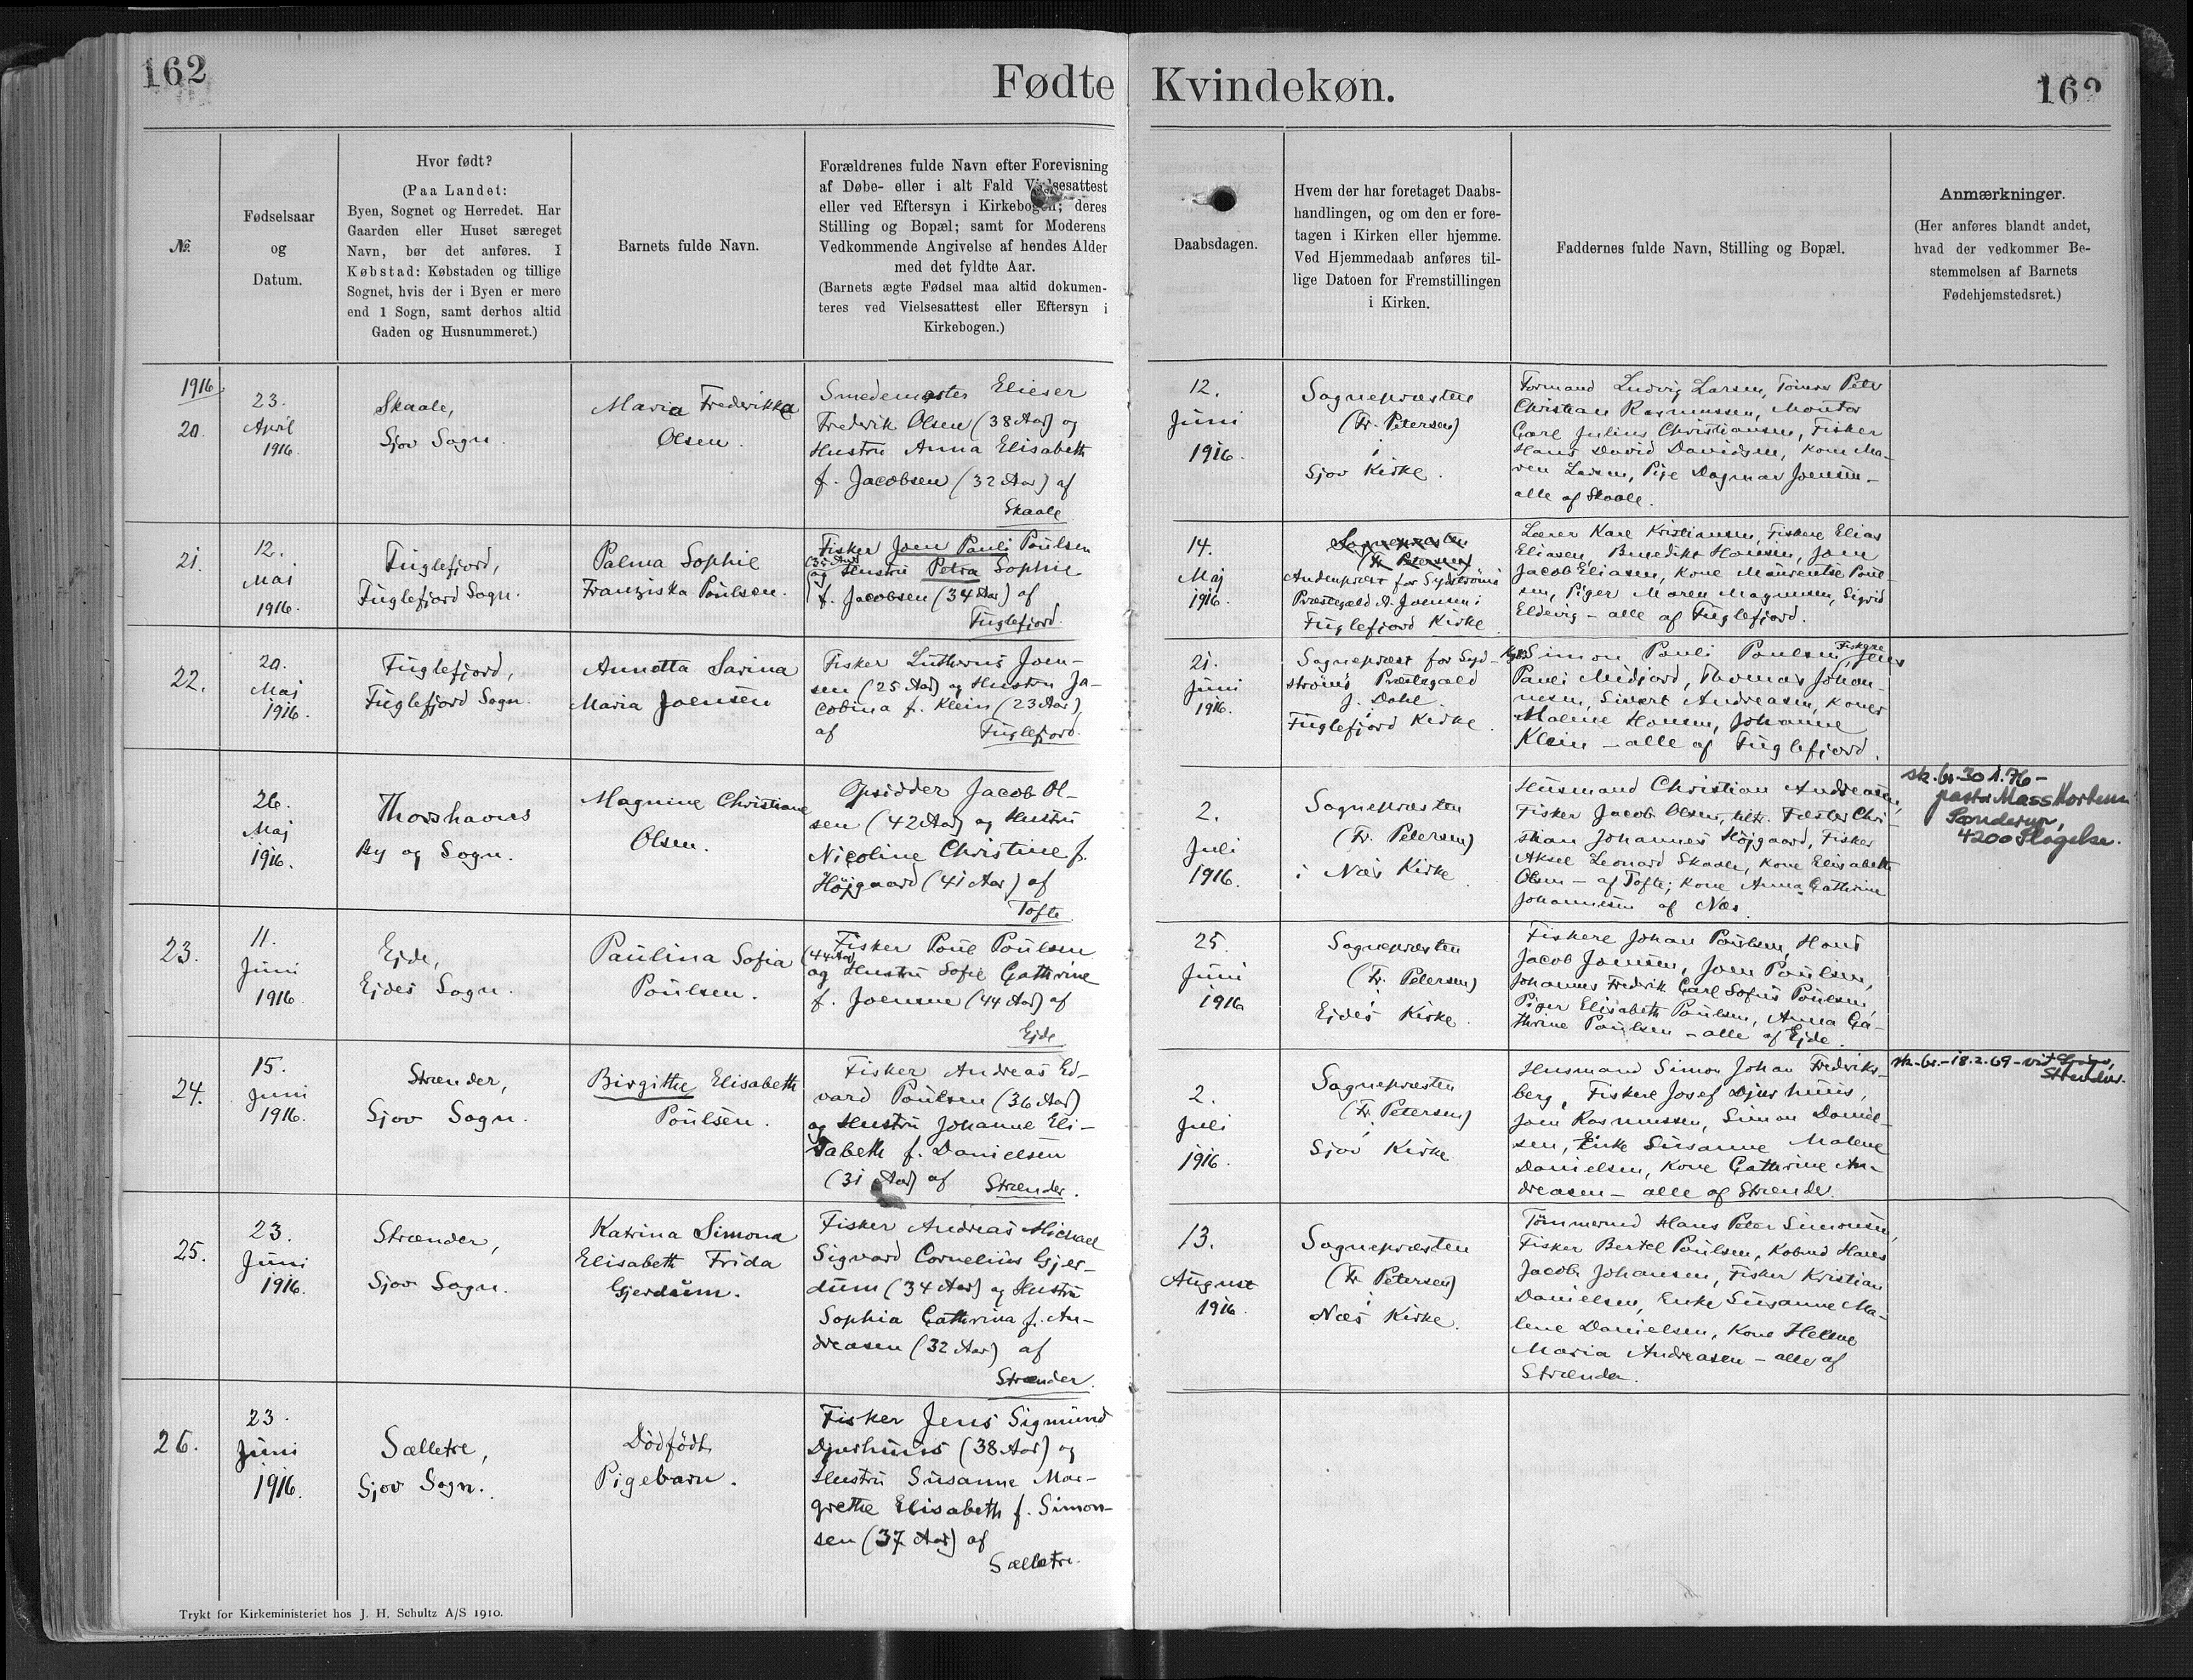 162
Fødte
Kvindekøn.
162
№.
Fødselsaar
og
Datum.
Hvor født?
(Paa Landet:
Byen, Sognet og Herredet. Har
Gaarden eller Huset særeget
Navn, bør det anføres. I
Købstad: Købstaden og tillige
Sognet, hvis der i Byen er mere
end 1 Sogn, samt derhos altid
Gaden og Husnummeret.)
Barnets fulde Navn.
Forældrenes fulde Navn efter Forevisning
af Døbe- eller i alt Fald Vielsesattest
eller ved Eftersyn i Kirkebogen; deres
Stilling og Bopæl; samt for Moderens
Vedkommende Angivelse af hendes Alder
med det fyldte Aar.
(Barnets ægte Fødsel maa altid dokumen-
teres ved Vielsesattest eller Eftersyn i
Kirkebogen.)
Daabsdagen.
Hvem der har foretaget Daabs-
handlingen, og om den er fore-
tagen i Kirken eller hjemme.
Ved Hjemmedaab anføres til-
lige Datoen for Fremstillingen
i Kirken.
Faddernes fulde Navn, Stilling og Bopæl.
Anmærkninger.
(Her anføres blandt andet,
hvad der vedkommer Be-
stemmelsen af Barnets
Fødehjemstedsret.)
1916
20.
23.
April
1916.
Skaale,
Sjov Sogn.
Maria Frederikka
Olsen.
Smedemester Elieser
Frederik Olsen (38 Aar) og
Hustru Anna Elisabeth
f. Jacobsen (32 Aar) af
Skaale
12.
Juni
1916.
Sognepræsten
(Fr. Petersen)
i
Sjov Kirke.
Formand Ludvig Larsen, Tömrer Peter
Christian Rasmussen, Montör
Carl Julius Christiansen, Fisker
Hans David Davidsen, Kone Ma-
ren Larsen, Pige Dagmar Joensen –
alle af Skaale.
21.
12.
Maj
1916.
Fuglefjord,
Fuglefjord Sogn.
Palma Sophie
Franziska Poulsen.
Fisker Joen Pauli Poulsen
(35 Aar)
og Hustru Petra Sophie
f. Jacobsen (34 Aar) af
Fuglefjord.
14.
Maj
1916.
Sognepræsten
(Fr. Petersen)
Andenpræst for Sydströms
Præstegæld A. Joensen i
Fuglefjord Kirke.
Lærer Karl Kristiansen, Fiskere Elias
Eliasen, Benedikt Hansen, Joen
Jacob Eliasen, Kone Maurentse Poul-
sen, Piger Maren Magnussen, Sigrid
Eldevig – alle af Fuglefjord.
22.
20.
Maj
1916.
Fuglefjord,
Fuglefjord Sogn.
Annetta Sarina
Maria Joensen
Fisker Lutherus Joen-
sen (25 Aar) og Hustru Ja-
cobina f. Klein (23 Aar),
af Fuglefjord.
21.
Juni
1916.
Sognepræst for Syd-
ströms Præstegæld
J. Dahl
i
Fuglefjord Kirke.
Simon Pauli Poulsen, Fiskere Jens
Pauli Midjord, Thomas Johan-
nesen, Sivert Andreasen, Koner
Malene Hansen, Johanne
Klein – alle af Fuglefjord.
26.
Maj
1916.
Thorshavns
By og Sogn.
Magnine Christiane
Olsen.
Opsidder Jacob Ol-
sen (42 Aar) og Hustru
Nicoline Christine f.
Höjgaard (41 Aar) af
Tofte
2.
Juli
1916.
Sognepræsten
(Fr. Petersen)
i Næs Kirke.
Husmand Christian Andreasen,
Fisker Jacob Olsen, Fæster Chri-
stian Johannes Höjgaard, Fisker
Aksel Leonard Skaale, Kone Elisabeth
Olsen – af Tofte; Kone Anna Cathrine
Johannesen af Næs.
sk.br. 30 1.76 –
pastor Mass Mortensen
Sønderup,
4200 Slagelse.
23.
11.
Juni
1916.
Ejde,
Ejdes Sogn.
Paulina Sofia
Poulsen.
Fisker Poul Poulsen
(44 Aar)
og Hustru Sofie Cathrine
f. Joensen (44 Aar) af
Ejde.
25.
Juni
1916
Sognepræsten
(Fr. Petersen)
i
Ejdes Kirke.
Fiskere Johan Poulsen, Hans
Jacob Joensen, Joen Poulsen,
Johannes Frederik Carl Sofus Poulsen,
Piger Elisabeth Poulsen, Anna Ca-
thrine Poulsen – alle af Ejde.
24.
15.
Juni
1916.
Strænder,
Sjov Sogn.
Birgithe Elisabeth
Poulsen.
Fisker Andreas Ed-
vard Poulsen (36 Aar)
og Hustru Johanne Eli-
sabeth f. Danielsen
(31 Aar) af Strænder.
2.
Juli
1916.
Sognepræsten
(Fr. Petersen)
i
Sjov Kirke.
Husmand Simon Johan Frederiks-
berg, Fiskere Josef Djurhuus,
Joen Rasmussen, Simon Daniel-
sen, Enke Susanne Malene
Danielsen, Kone Cathrine An-
dreasen – alle af Strænder.
sk.br. – 18.2.69 –
Strendur.
25.
23.
Juni
1916.
Strænder,
Sjov Sogn.
Katrina Simona
Elisabeth Frida
Gjerdum.
Fisker Andreas Michael
Sigvard Cornelius Gjer-
dum (34 Aar) og Hustru
Sophia Cathrina f. An-
dreasen (32 Aar) af
Strænder.
13.
August
1916.
Sognepræsten
(Fr. Petersen)
i
Næs Kirke.
Tömmermd Hans Peter Simonsen,
Fisker Bertel Poulsen, Købmd Hans
Jacob Johansen, Fisker Kristian
Danielsen, Enke Susanne Ma-
lene Danielsen, Kone Helene
Maria Andreasen – alle af
Strænder.
26.
23.
Juni
1916.
Sælletre,
Sjov Sogn.
Dödfödt
Pigebarn.
Fisker Jens Sigmund
Djurhuus (38 Aar) og
Hustru Susanne Mar-
grethe Elisabeth f. Simon-
sen (37 Aar) af
Sælletre.
Trykt for Kirkeministeriet hos J. H. Schultz A/S 1910.